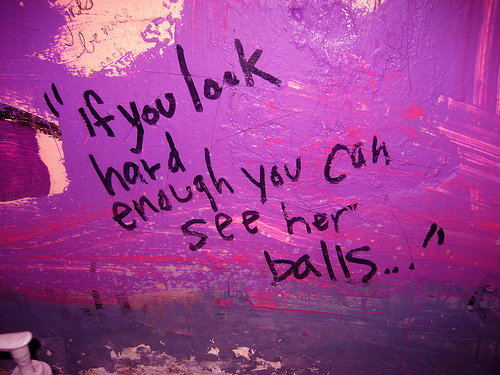 "if you look
hard
enough you can
see her
balls..."